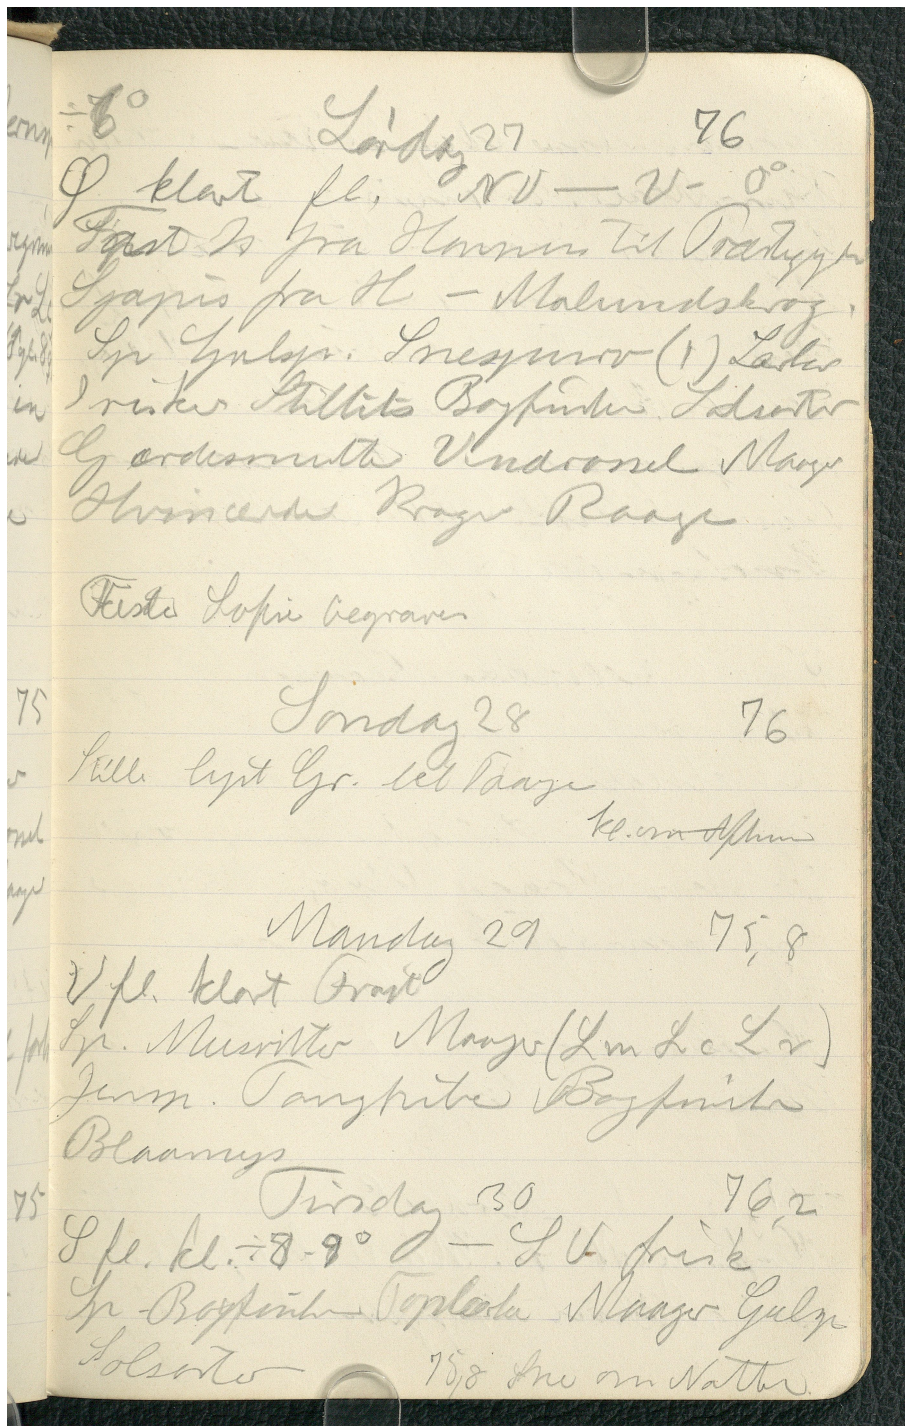 ÷6° Lördag 27 76
Ø klart fl. NV — V- 0°
Fast Is fra Hannens til
Sjapis fra H — Malunds krog.
Sp Gulsp. Snespurv (1) Lærker
Irisker Stillits Bogfinke Solsorter
Gærdesmutte Vindrossel Maager
Krager Raage
Sofie begraves
Söndag 28 76
Stille lyst Gr. let Taage
kl. om Aftnen
Mandag 29 75,8
V fl. klart Frost
Sp. Musvitter Maager (L m L c L r)
Jernsp. Bogfinke
Blaamejs
Tirsdag 30 76,2
S fl. kl. ÷8-9° — S V frisk
Sp Bogfinke Toplærke Maager Gulsp
Solsorter 75,8 Sne om Natten.
75
75